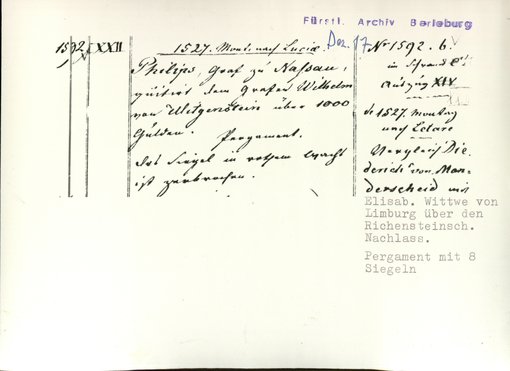 Fürstl. Archiv Berleburg
1592. XXII
1527. Mont. nach Luciæ.
Dez. 17
Philips, Graf zu Nassau,
quitirt dem Grafen Wilhelm
von Witgenstein über 1000
Gulden. Pergament.
Das Siegel in rothem Wachs
ist zerbrochen.
Nr 1592. b.
in Schrank
Auszug XIV
de 1527. Montag
nach Letare
Vergleich Die-
derich von Man-
derscheid mit
Elisab. Wittwe von
Limburg über den
Richensteinsch.
Nachlass.
Pergament mit 8
Siegeln